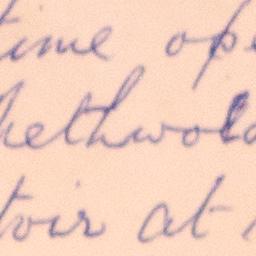 time ope
hethwold
oir at